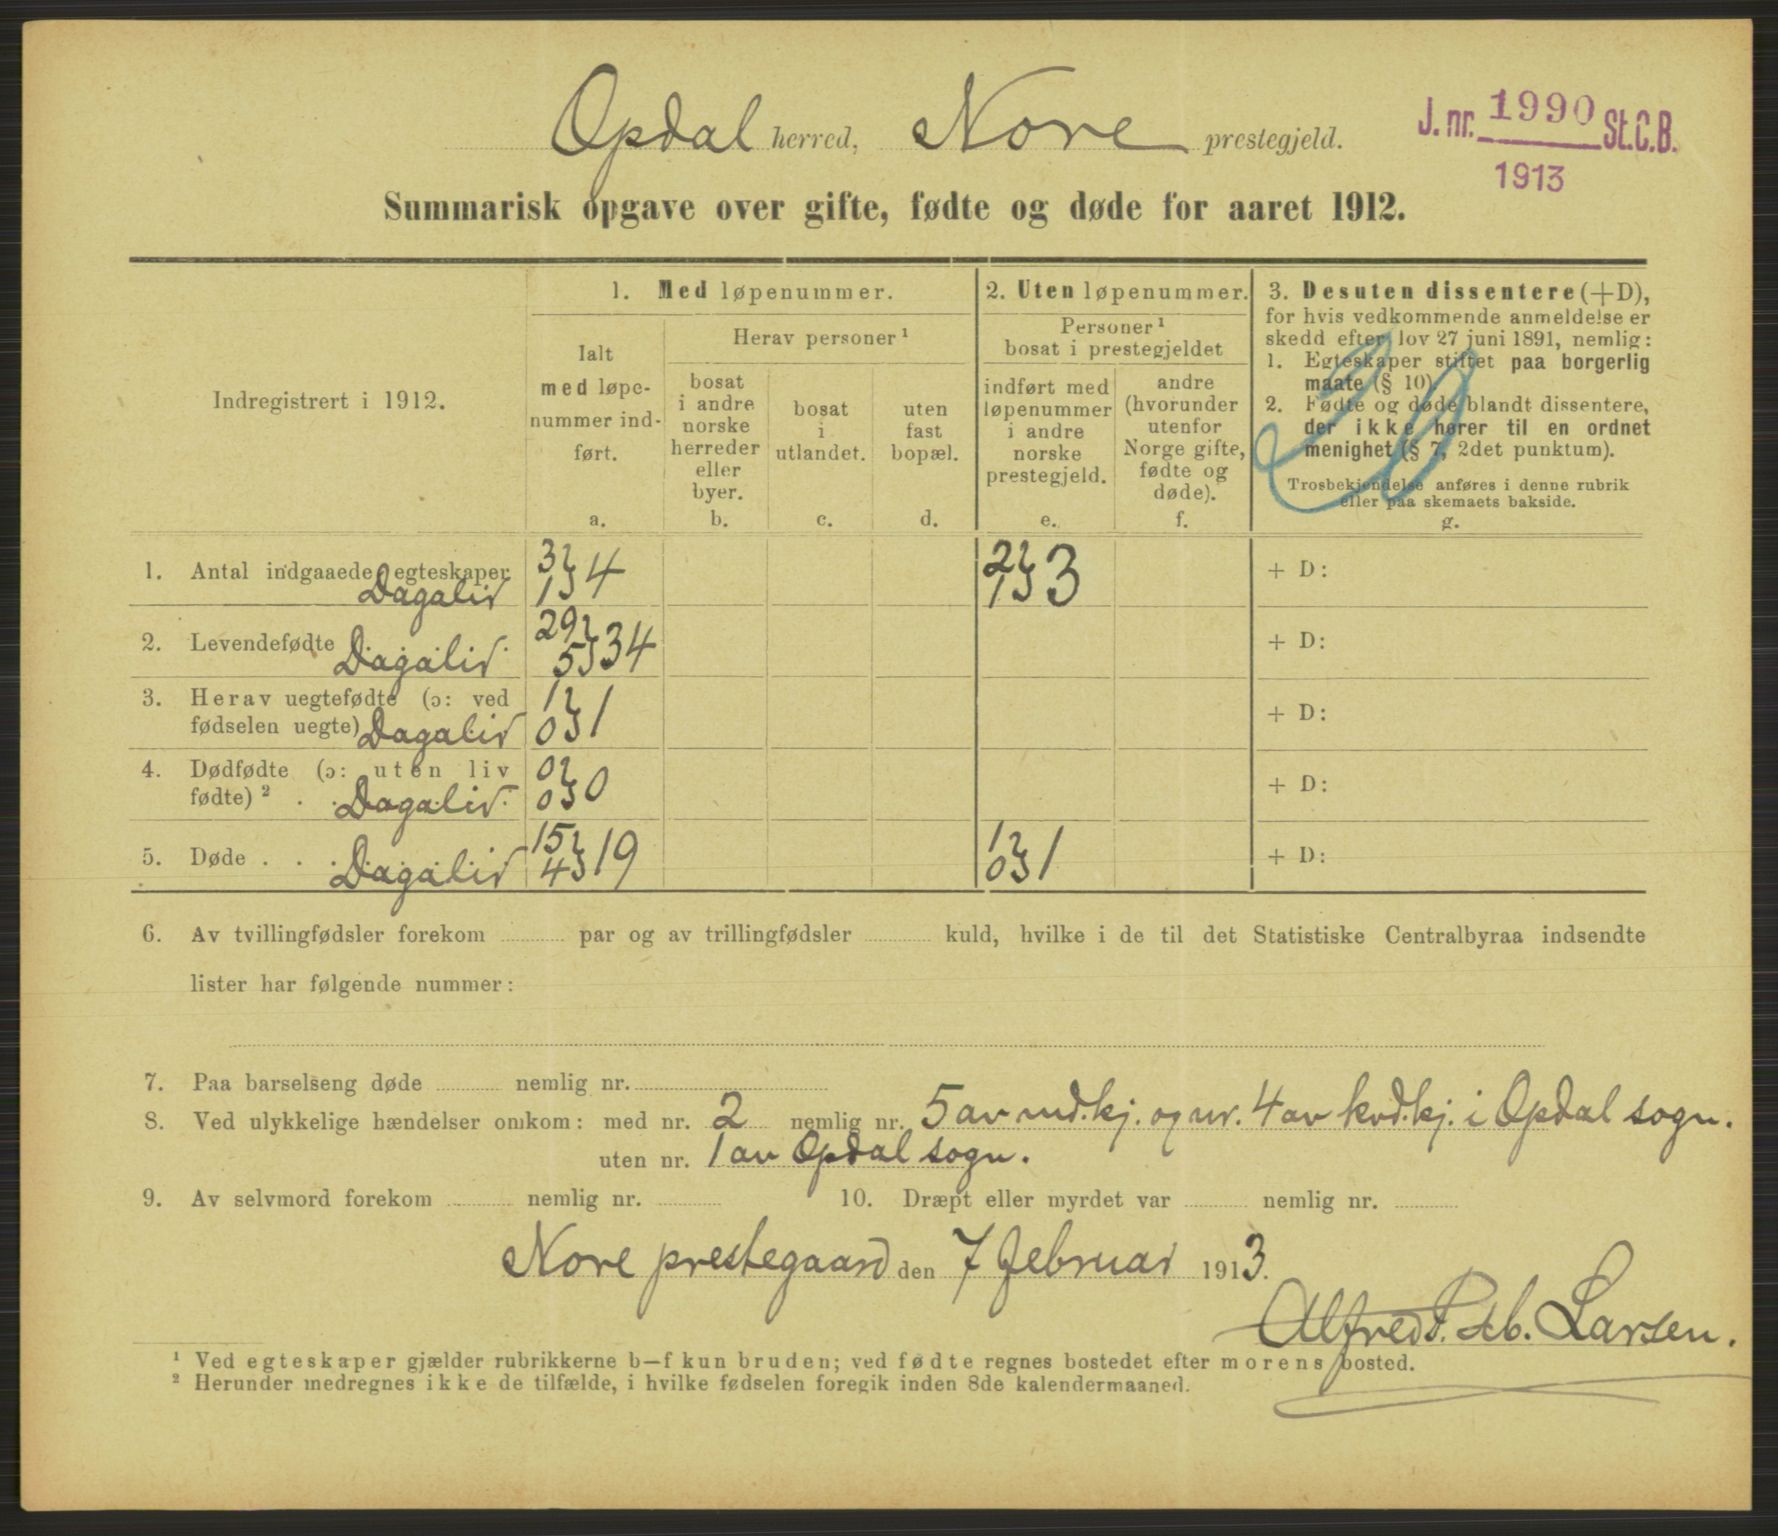 Opdal herred, Nore prestegjeld.
J. nr. 1990 St. C. B.
1913
Summarisk opgave over gifte, fødte og døde for aaret 1912.
Indregistrert i 1912.
1. Med løpenummer.
Ialt
med løpe-
nummer ind-
ført.
a.
Herav personer ¹
bosat
i andre
norske
herreder
eller
byer.
b.
bosat
i
utlandet.
c.
uten
fast
bopæl.
d.
2. Uten løpenummer.
Personer ¹
bosat i prestegjeldet
indført med
løpenummer
i andre
norske
prestegjeld.
e.
andre
(hvorunder
utenfor
Norge gifte,
fødte og
døde).
f.
3. Desuten dissentere (+D),
for hvis vedkommende anmeldelse er
skedd efter lov 27 juni 1891, nemlig:
1. Egteskaper stiftet paa borgerlig
maate (§ 10).
2. Fødte og døde blandt dissentere,
der ikke hører til en ordnet
menighet (§ 7, 2det punktum).
Trosbekjendelse anføres i denne rubrik
eller paa skemaets bakside.
g.
1. Antal indgaaede egteskaper 3 } 4 2 } 3 + D:
Dagalid 1 1
2. Levendefødte 29 } 34 + D:
Dagalid 5
3. Herav uegtefødte (ɔ: ved 1 } 1 + D:
fødselen uegte) Dagalid 0
4. Dødfødte (ɔ: uten liv 0 } 0 + D:
fødte) ² . . Dagalid 0
5. Døde . . . 15 } 19 1 } 1 + D:
Dagalid 4 0
6. Av tvillingfødsler forekom par og av trillingfødsler kuld, hvilke i de til det Statistiske Centralbyraa indsendte
lister har følgende nummer:
7. Paa barselseng døde nemlig nr.
8. Ved ulykkelige hændelser omkom: med nr. 2 nemlig nr. 5 av md.kj. og nr. 4 av kvd.kj. i Opdal sogn.
uten nr. 1 av Opdal sogn.
9. Av selvmord forekom nemlig nr. 10. Dræpt eller myrdet var nemlig nr.
Nore prestegaard den 7 februar 1913.
Alfred Larsen.
¹ Ved egteskaper gjælder rubrikkerne b—f kun bruden; ved fødte regnes bostedet efter morens bosted.
² Herunder medregnes ikke de tilfælde, i hvilke fødselen foregik inden 8de kalendermaaned.